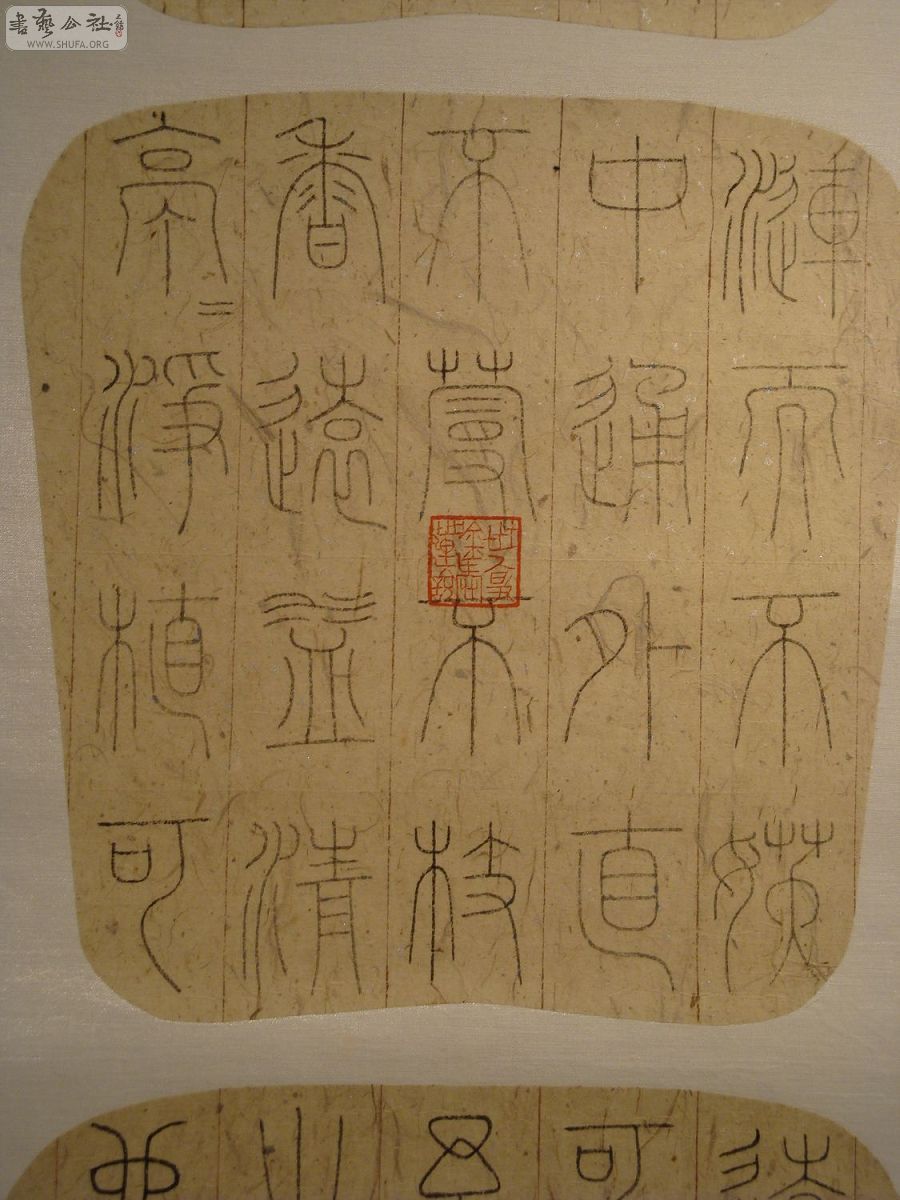 書藝公社
WWW.SHUFA.ORG
漣而不妖
中通外直
不蔓不枝
香遠益清
亭〻淨植可
可